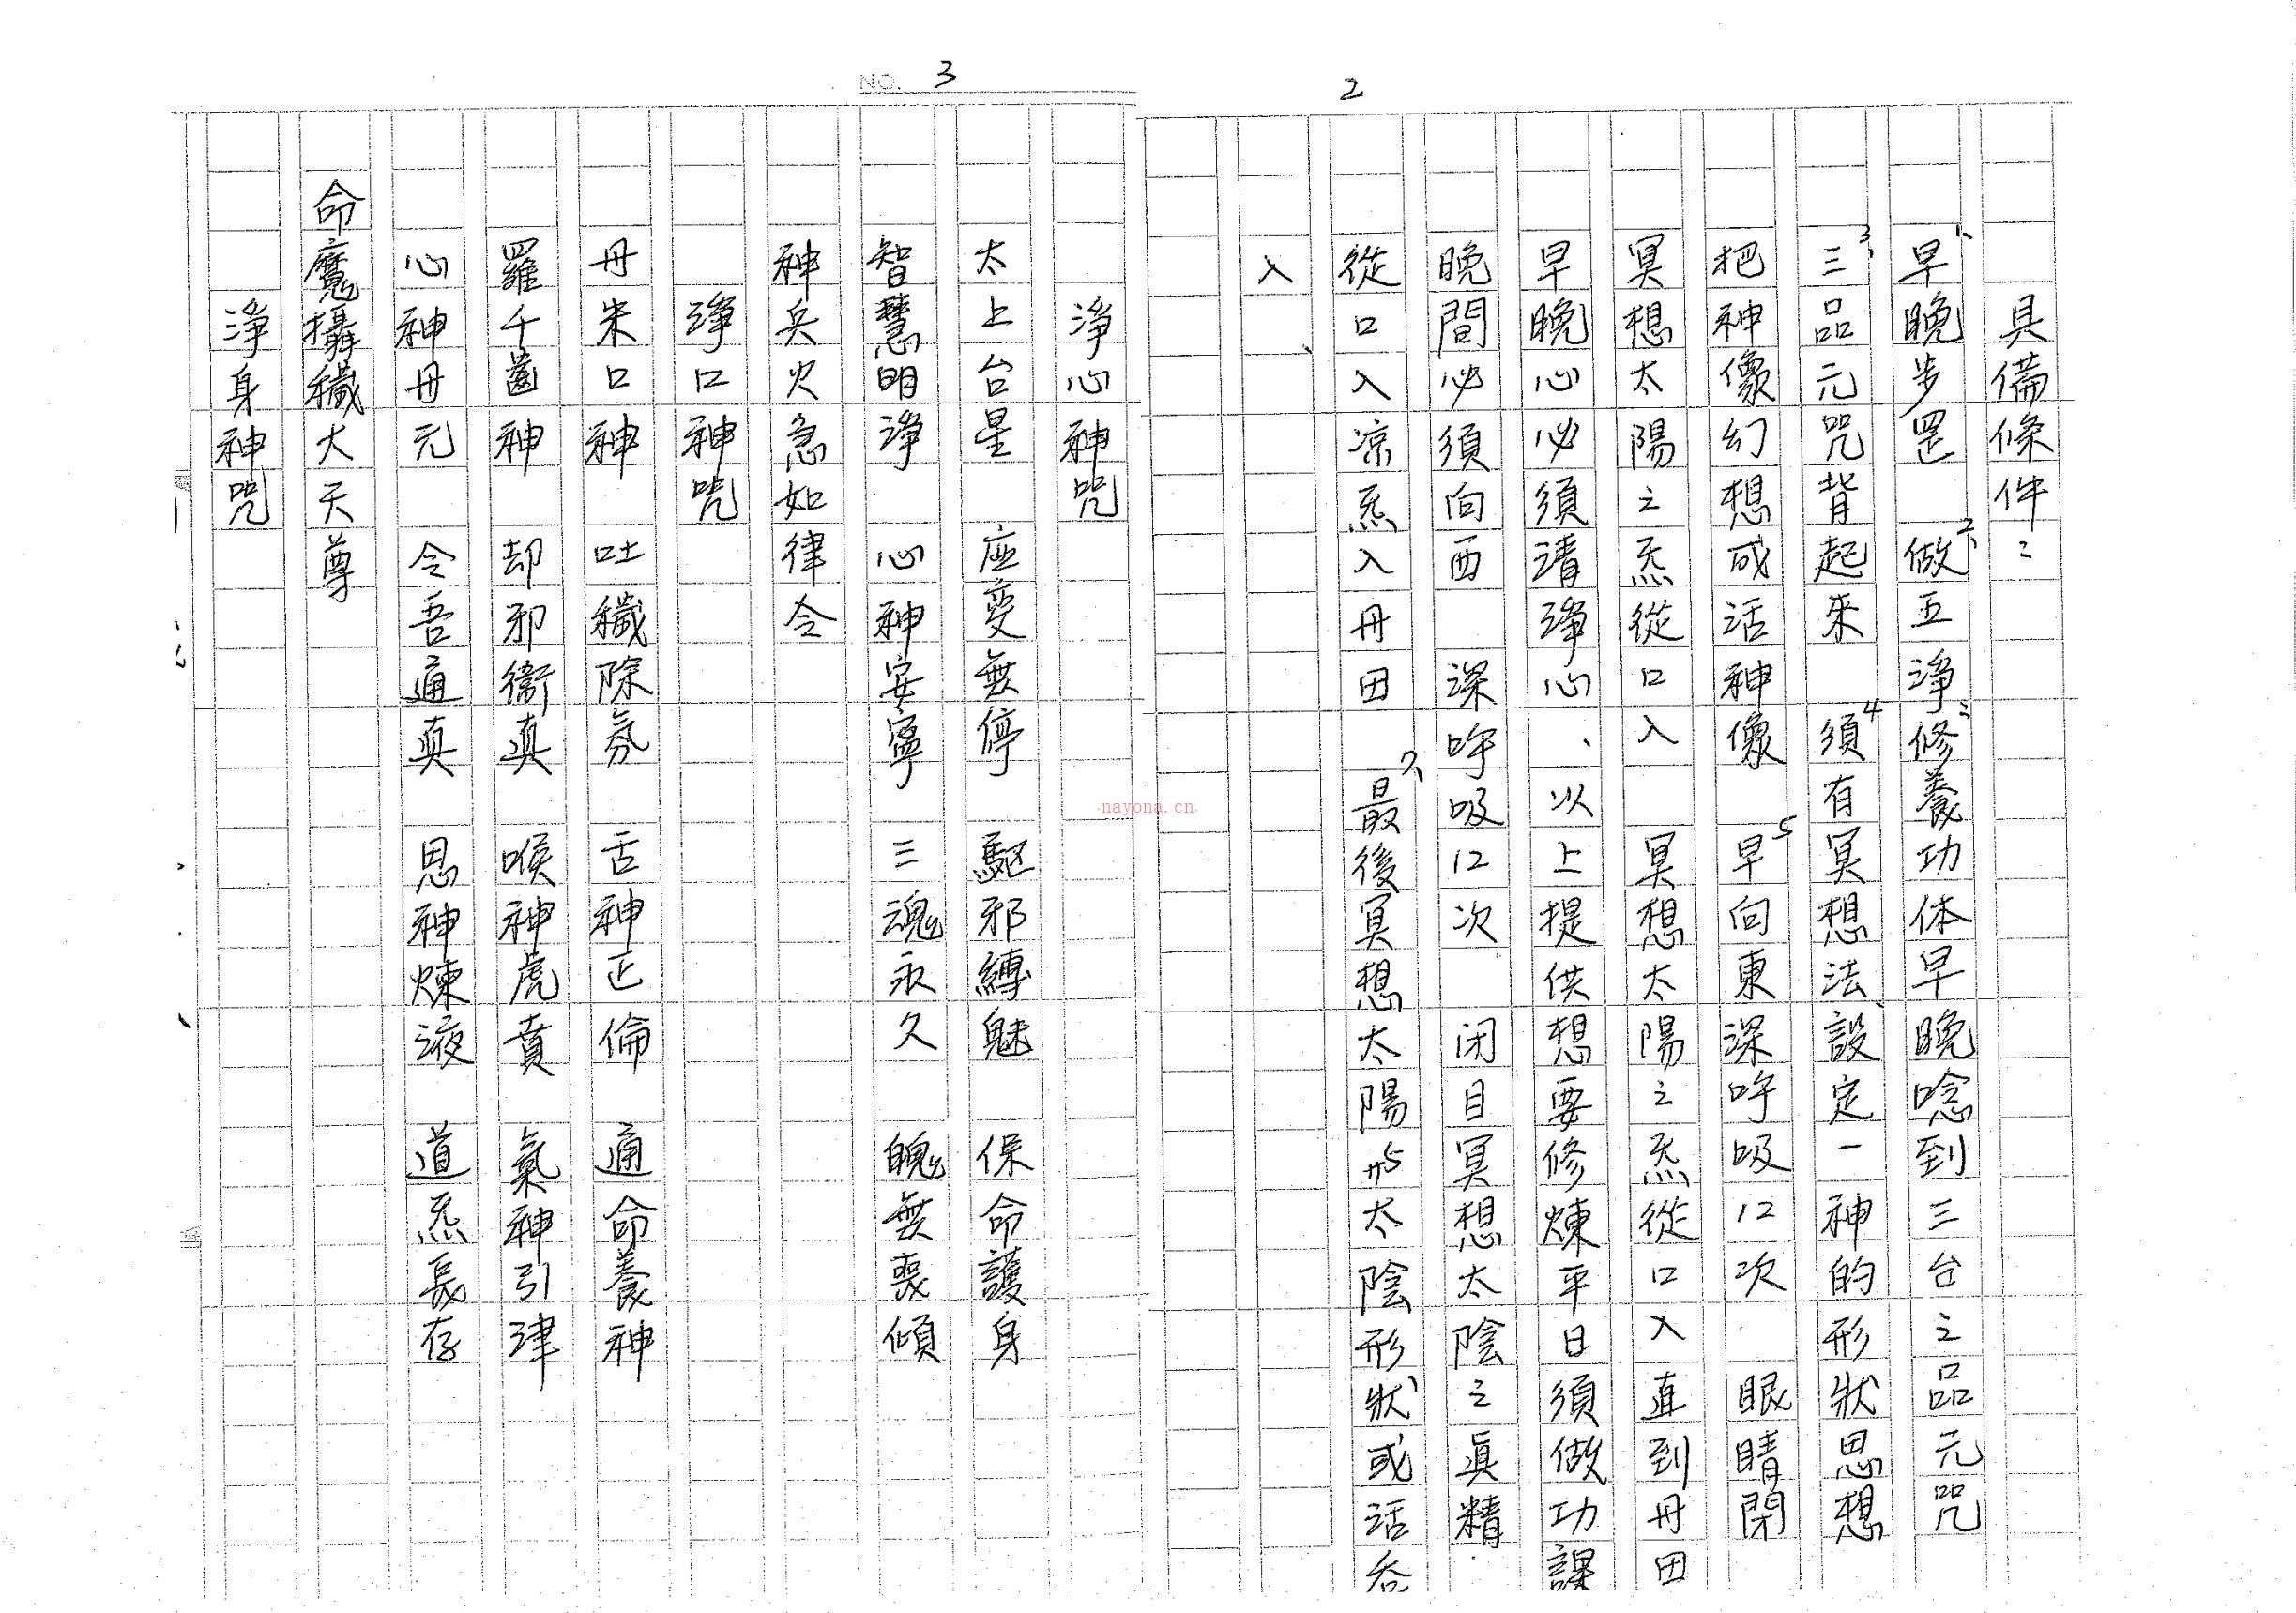 2
具備條件：
1、早晚步罡 2、做五淨 3、修養功体早晚唸到三台之品元咒
3、三品元咒背起來 4、須有冥想法、設定一神的形狀思想
把神像幻想成活神像 5、早向東深呼吸12次 眼睛閉
冥想太陽之炁從口入 冥想太陽之炁從口入直到丹田
早晚心必須清淨心、以上提供想要修煉平日須做功課
晚間必須向西 深呼吸12次 闭目冥想太陰之真精
從口入凉炁入丹田 7、最後冥想太陽 太陰形狀、或活吞
入、
NO. 3
淨心神咒
太上台星 应变無停 驅邪縛魅 保命護身
智慧明淨 心神安寧 三魂永久 魄無喪傾
神兵火急如律令
淨口神咒
丹朱口神 吐穢除氛 舌神正倫 通命養神
羅千齒神 却邪衞真 喉神虎賁 氣神引津
心神丹元 令吾通真 思神煉液 道炁長存
命魔攝穢大天尊
淨身神咒
nayona.cn